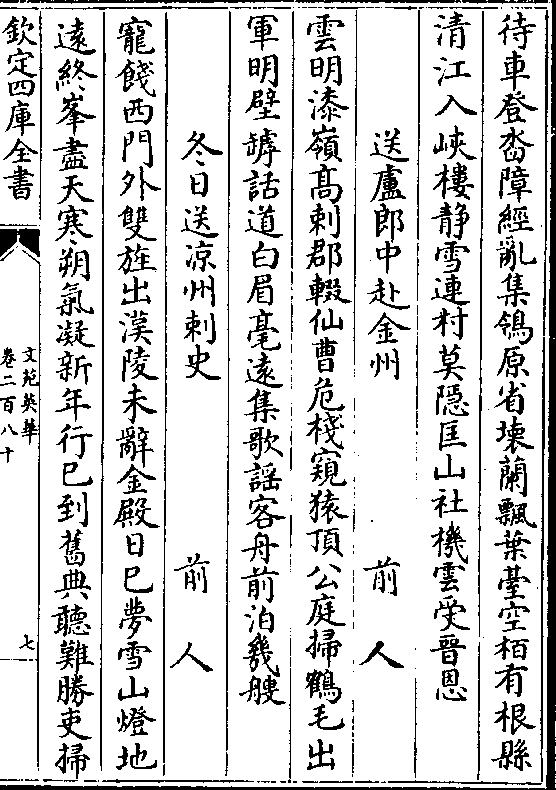 待車登畨障經亂集鴒原省壊蘭飄葉䑓空栢有根縣
清江入峽樓静雪連村莫隠匡山社機雲受晉恩
送盧郎中赴金州　前人
雲明漆嶺髙刺郡輟仙曹危棧窺猿頂公庭掃鶴毛出
軍明壁罅話道白眉毫遠集歌謡客舟前泊幾艘
冬日送凉州刺史　前人
寵餞西門外雙旌出漢陵未辭金殿日已夢雪山燈地
遠終峯盡天寒朔氣凝新年行已到舊典聽難勝吏掃
欽定四庫全書
文苑英華
卷二百八十
七